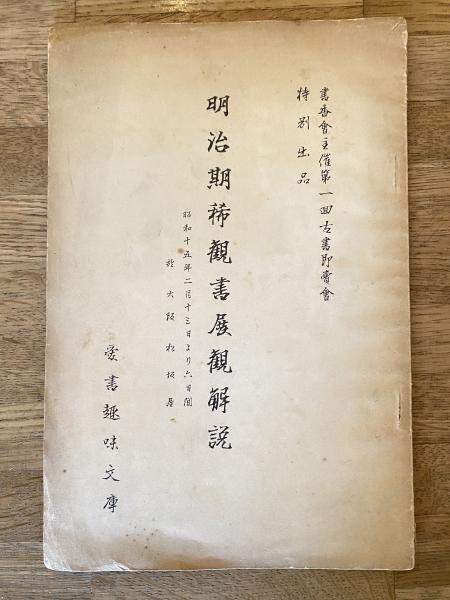 書香會主催第一回古書即賣會
特別出品
明治期稀觀書展觀解説
昭和十五年二月十三日より六日間
於大阪松坂屋
愛書趣味文庫